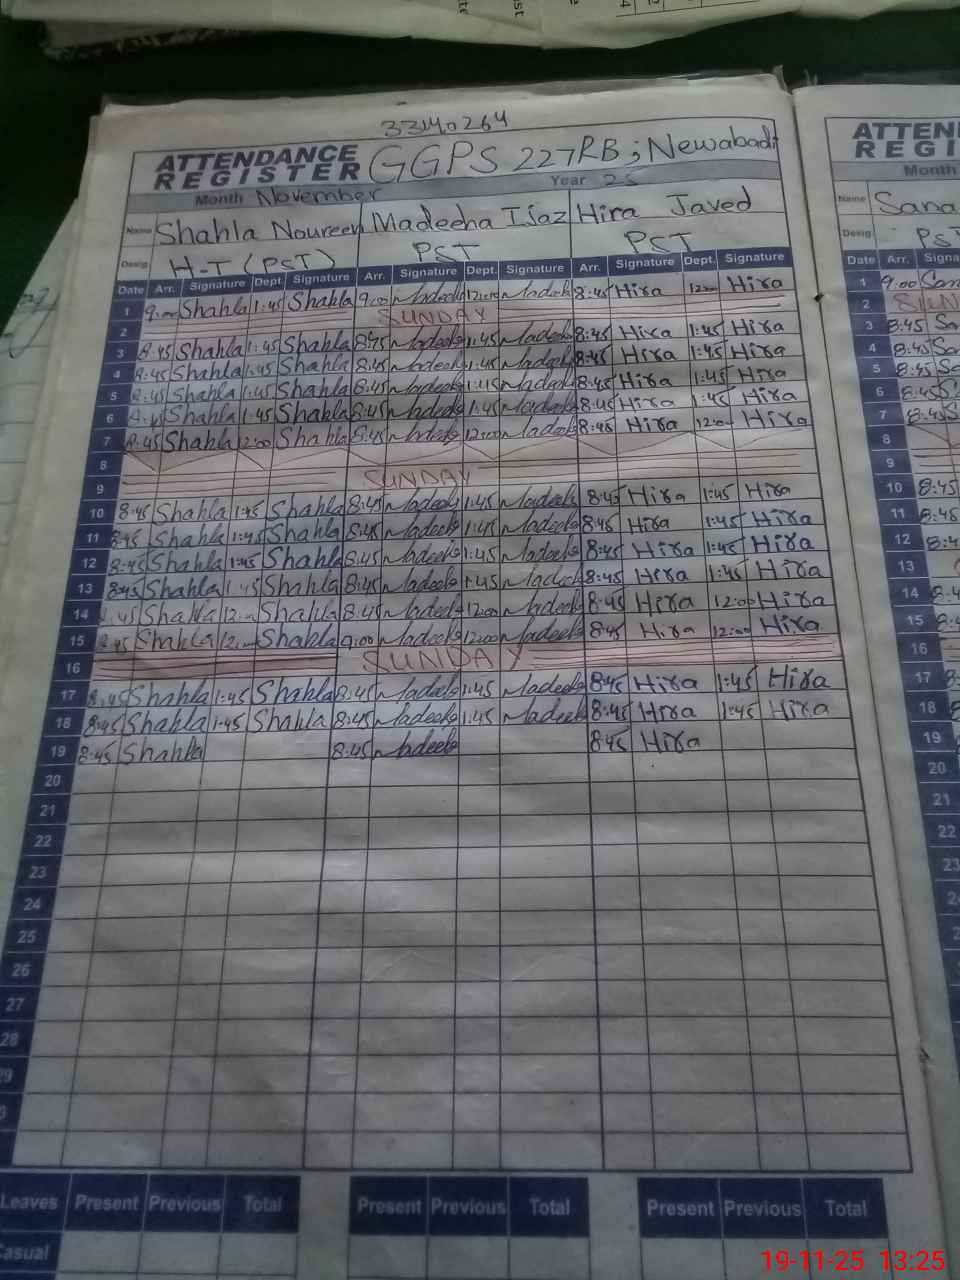 33140264
ATTENDANCE REGISTER GGPS 227RB; Newabadi
Month November Year 25
Name Shahla Noureen Madeeha Ijaz Hira Javed
Desig H-T (PST) PST PST
Date Arr. Signature Dept. Signature Arr. Signature Dept. Signature Arr. Signature Dept. Signature
1 9:00 Shahla 1:45 Shahla 9:00 Madeeha 12:00 Madeeha 8:45 Hira 12:00 Hira
2 SUNDAY
3 8:45 Shahla 1:45 Shahla 8:45 Madeeha 1:45 Madeeha 8:45 Hira 1:45 Hira
4 8:45 Shahla 1:45 Shahla 8:45 Madeeha 1:45 Madeeha 8:45 Hira 1:45 Hira
5 8:45 Shahla 1:45 Shahla 8:45 Madeeha 1:45 Madeeha 8:45 Hira 1:45 Hira
6 8:45 Shahla 1:45 Shahla 8:45 Madeeha 1:45 Madeeha 8:45 Hira 1:45 Hira
7 8:45 Shahla 12:00 Shahla 8:45 Madeeha 12:00 Madeeha 8:45 Hira 12:00 Hira
8
9 SUNDAY
10 8:45 Shahla 1:45 Shahla 8:45 Madeeha 1:45 Madeeha 8:45 Hira 1:45 Hira
11 8:45 Shahla 1:45 Shahla 8:45 Madeeha 1:45 Madeeha 8:45 Hira 1:45 Hira
12 8:45 Shahla 1:45 Shahla 8:45 Madeeha 1:45 Madeeha 8:45 Hira 1:45 Hira
13 8:45 Shahla 1:45 Shahla 8:45 Madeeha 1:45 Madeeha 8:45 Hira 1:45 Hira
14 8:45 Shahla 12:00 Shahla 8:45 Madeeha 12:00 Madeeha 8:45 Hira 12:00 Hira
15 8:45 Shahla 12:00 Shahla 9:00 Madeeha 12:00 Madeeha 8:45 Hira 12:00 Hira
16 SUNDAY
17 8:45 Shahla 1:45 Shahla 8:45 Madeeha 1:45 Madeeha 8:45 Hira 1:45 Hira
18 8:45 Shahla 1:45 Shahla 8:45 Madeeha 1:45 Madeeha 8:45 Hira 1:45 Hira
19 8:45 Shahla 8:45 Madeeha 8:45 Hira
20
21
22
23
24
25
26
27
28
Leaves Present Previous Total Present Previous Total Present Previous Total
Casual
Month
Name Sana
Desig. PST
Date Arr.
1 9:00
2
3 8:45
4 8:45
5 8:45
6 8:45
7 8:45
8
9
10 8:45
11 8:45
12
13
14
15
16
17
18
19
20
21
22
23
19-11-25 13:25